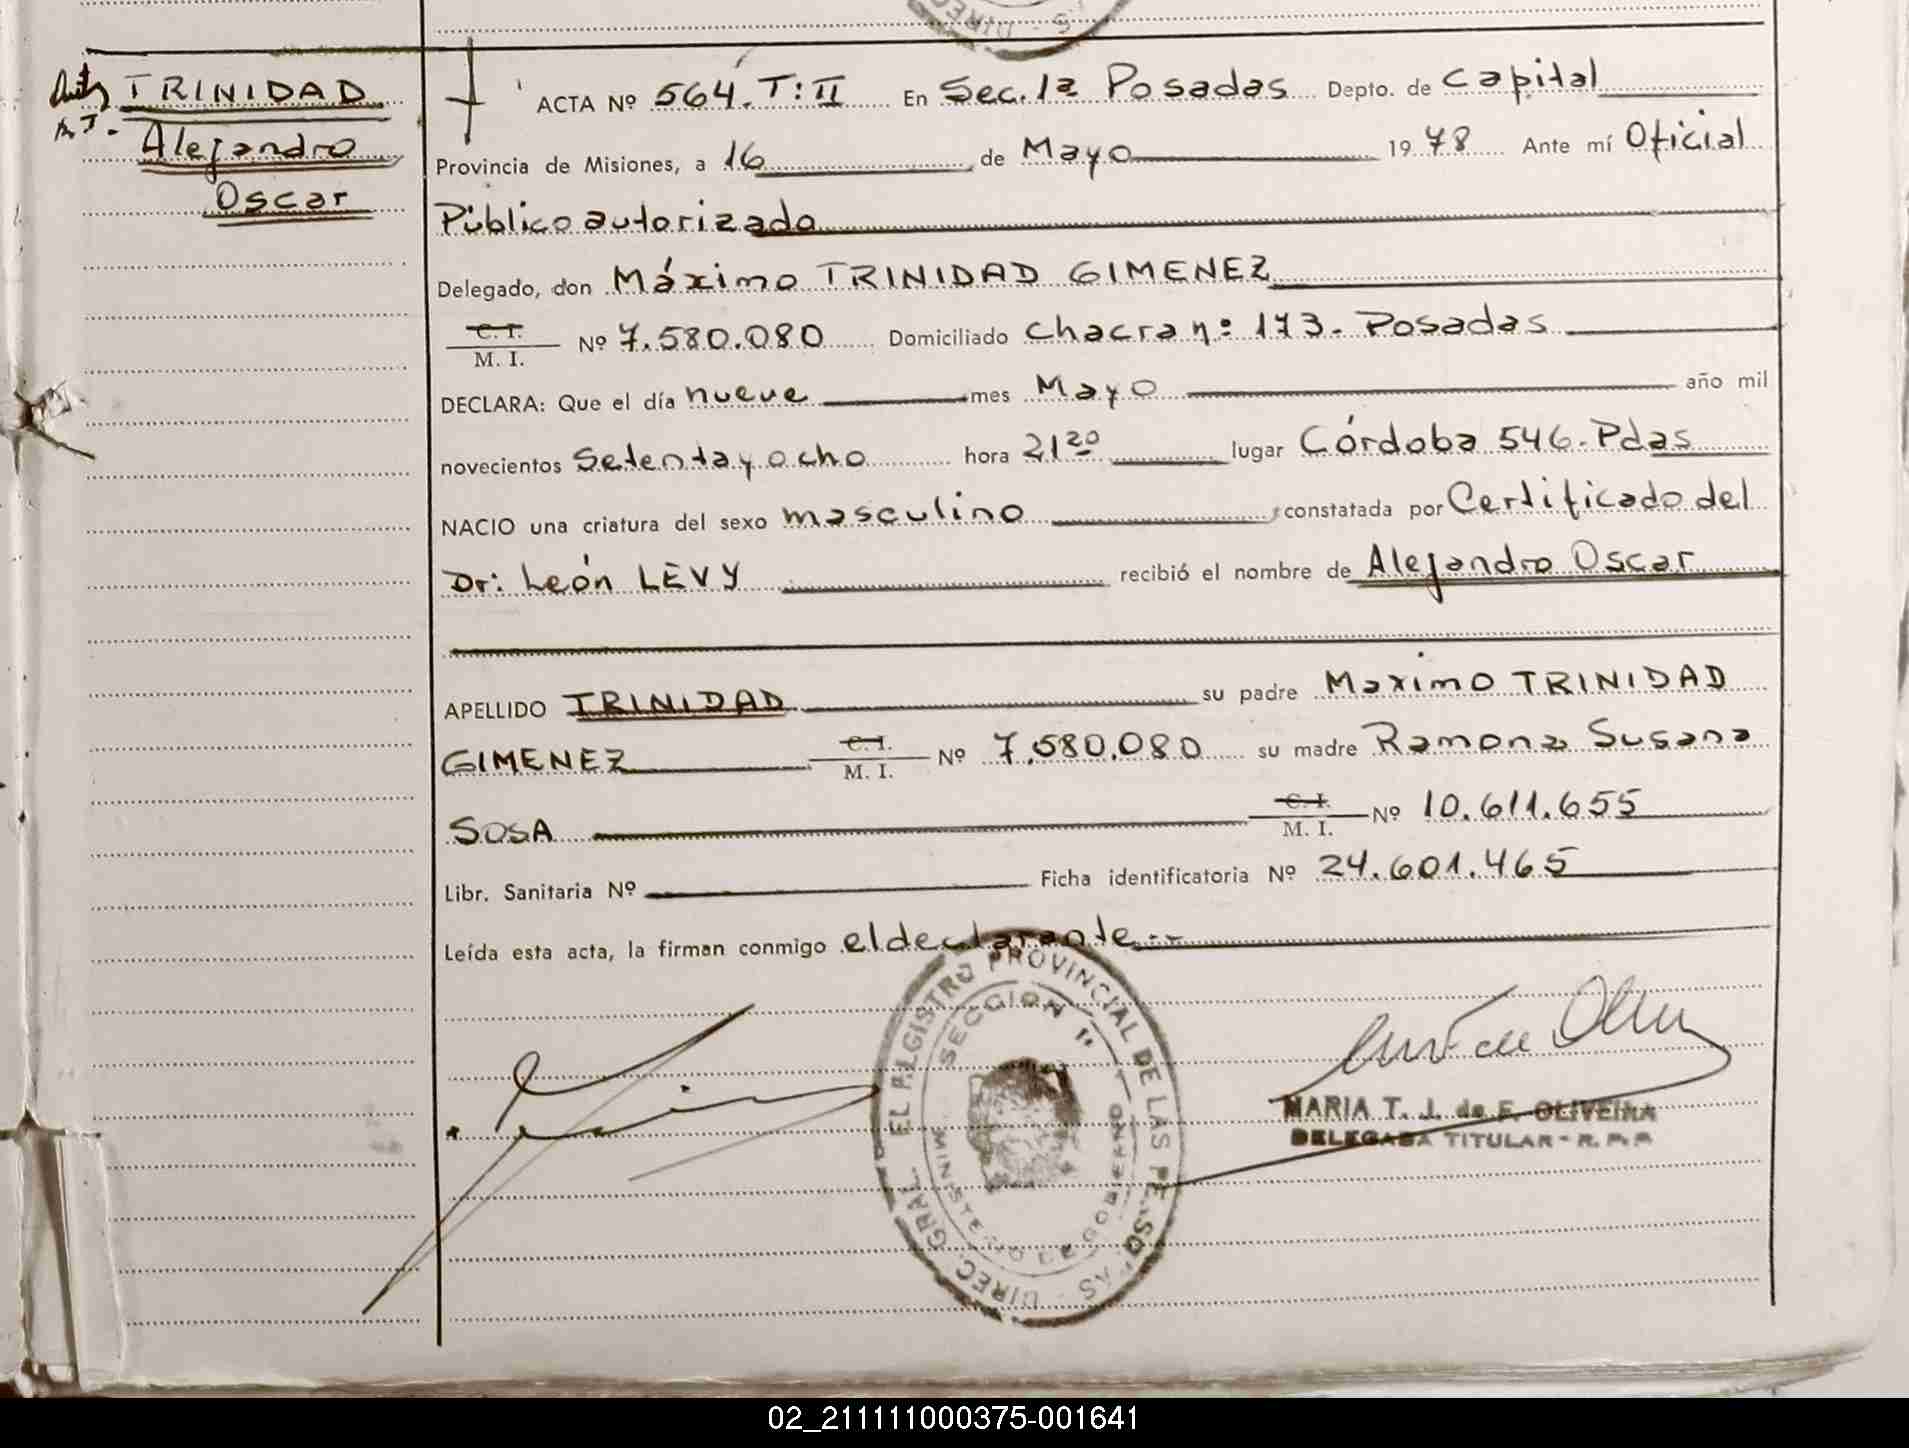 TRINIDAD
Alejandro
Oscar
ACTA Nº 564. T: II En Sec. 1a Posadas Depto. de Capital
Provincia de Misiones, a 16 de Mayo 1978 Ante mí Oficial
Público autorizado
Delegado, don Máximo TRINIDAD GIMENEZ
C. I.
M. I. Nº 7.580.080 Domiciliado Chacra nº: 173. Posadas
DECLARA: Que el día nueve mes Mayo año mil
novecientos Setenta y ocho hora 21 20 lugar Córdoba 546. Pdas
NACIO una criatura del sexo masculino constatada por Certificado del
Dr: León LEVY recibió el nombre de Alejandro Oscar
APELLIDO TRINIDAD su padre Maximo TRINIDAD
GIMENEZ C. I. M. I. Nº 7.580.080 su madre Ramona Susana
SOSA C. I. M. I. Nº 10.611.655
Libr. Sanitaria Nº Ficha identificatoria Nº 24.601.465
Leída esta acta, la firman conmigo el declarante.--
DIREC. GRAL. DEL REGISTRO PROVINCIAL DE LAS PERSONAS
SECCION 1a
MINISTERIO DE GOBIERNO
MARIA T. J. de F. OLIVEIRA
DELEGADA TITULAR - R. P. P.
02_211111000375-001641